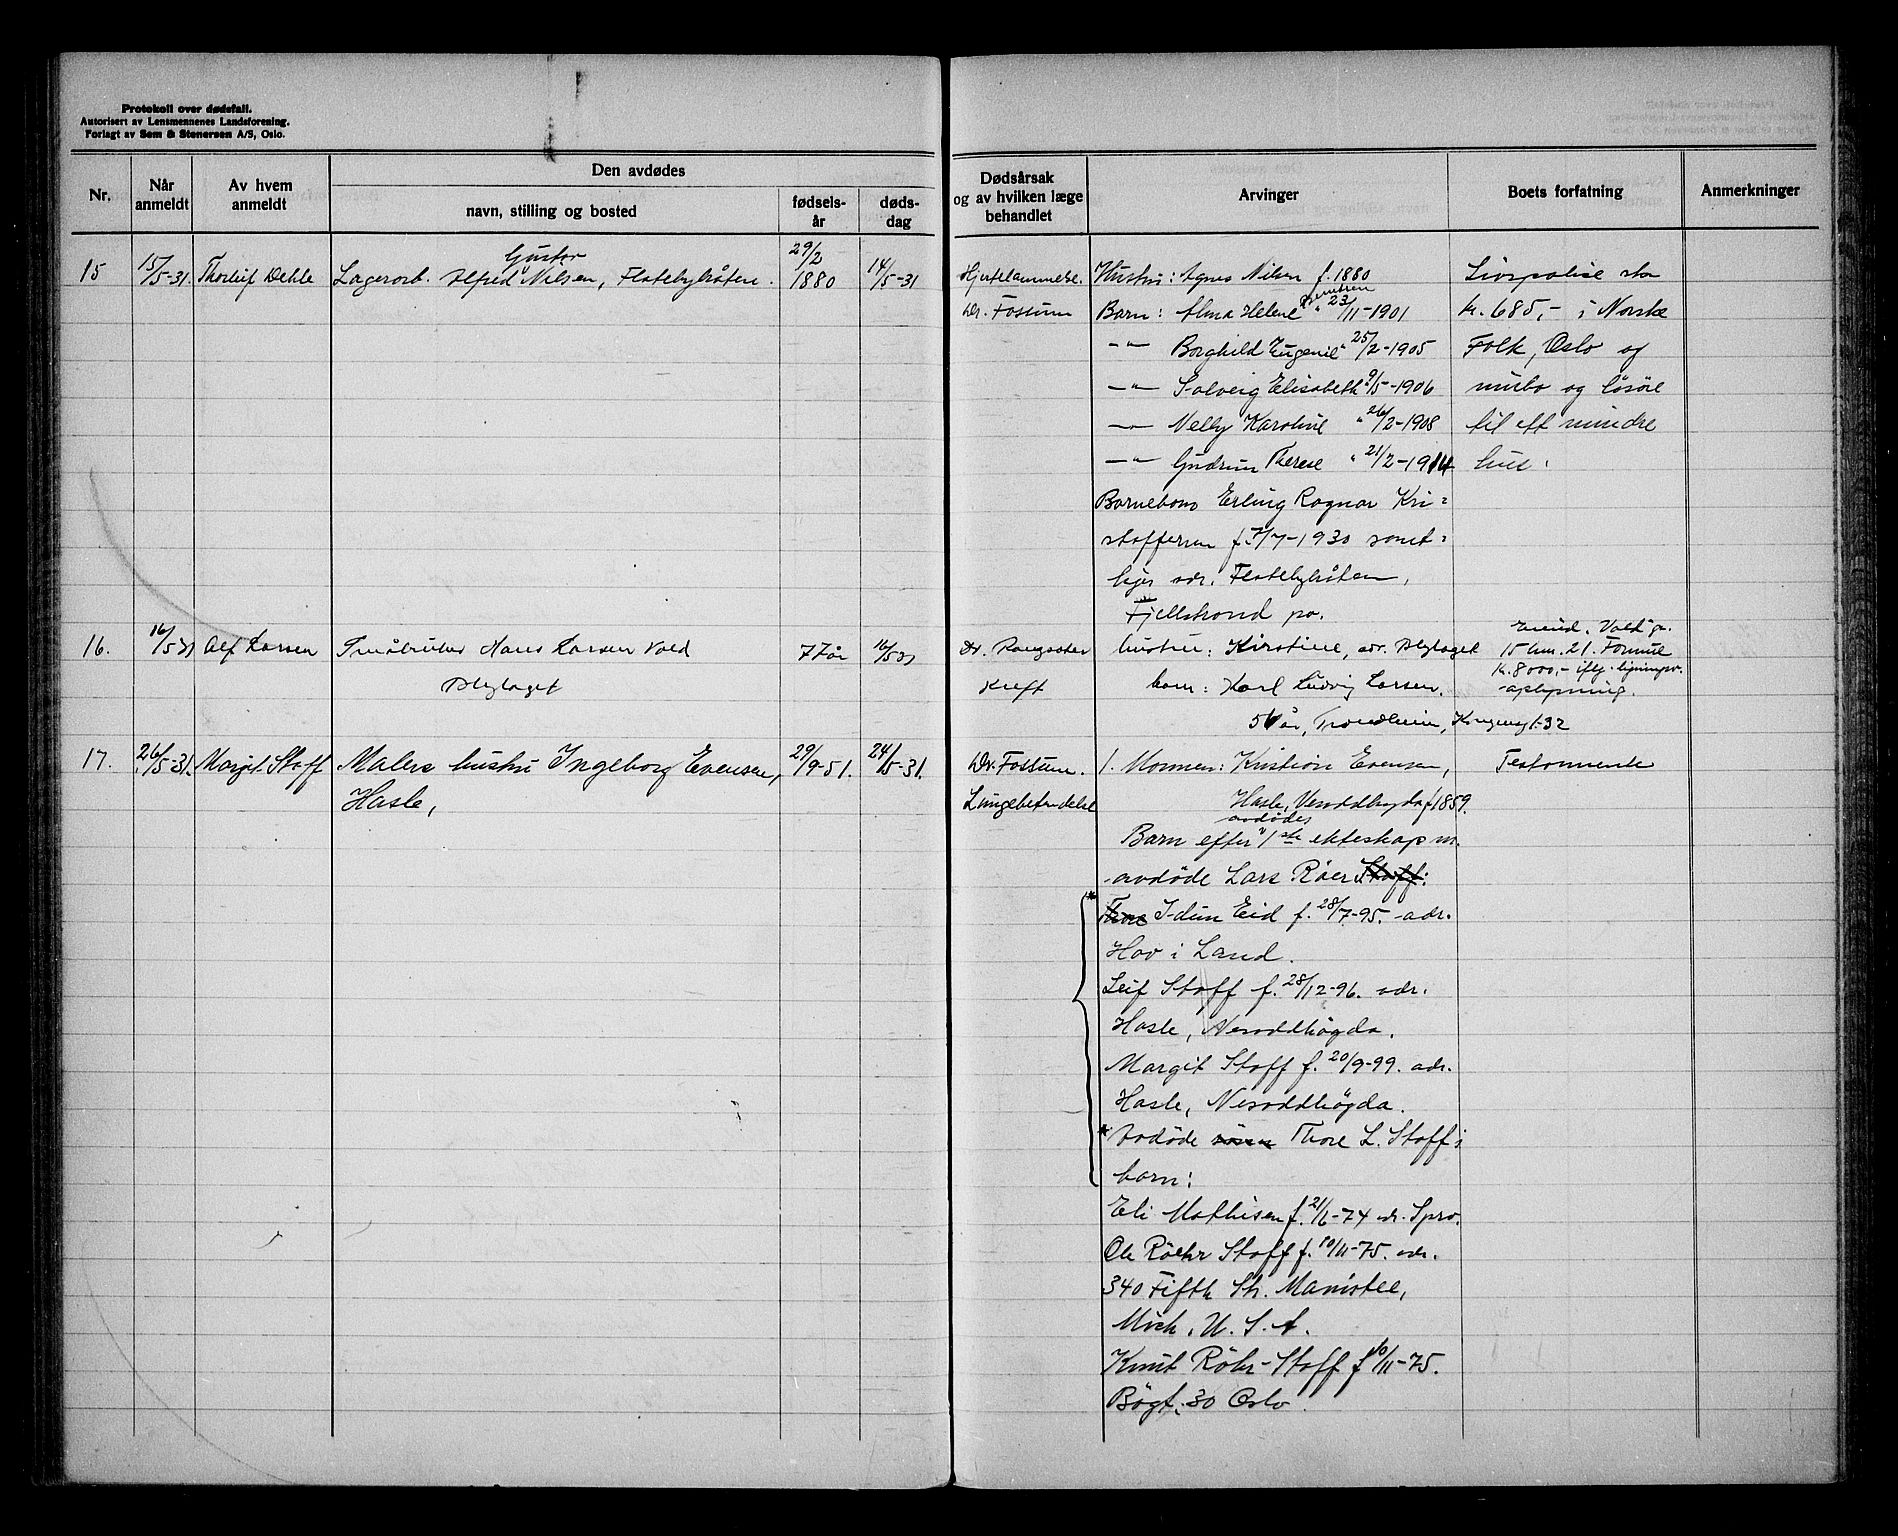 Protokoll over dødsfall.
Autorisert av Lensmennenes Landsforening.
Forlagt av Sem & Stenersen A/S, Oslo.
Nr.
Når anmeldt
Av hvem anmeldt
Den avdødes
navn, stilling og bosted
fødselsår
dødsdag
Dødsårsak og av hvilken læge behandlet
Arvinger
Boets forfatning
Anmerkninger
15 15/5-31. Thorleif Dehle Lagerarb. Alfred Gustav Nilsen, Flatebyhåten. 29/2 1880 14/5-31
Hjertelammelse.
Dr. Fossum
Hustru: Agnes Nilsen f. 1880
Barn: Alma Helene Berntsen " 23/11-1901
-"- Borghild Eugenie " 25/2-1905
-"- Solveig Elisabeth " 9/5-1906
-"- Nelly Karoline " 26/2-1908
-"- Gudrun Therese " 21/2-1914
Barnebarn Erling Ragnar Kri=
stoffersen f. 7/7-1930 samt=
lige adr. Flatebyhåten,
Fjellstrand po.
Livspolise stor
kr. 685,- i Norske
Folk, Oslo og
innbo og løsøre
til ett mindre
hus.
16. 16/5 31 Alf Larsen Småbruker Hans Larsen Vold
Blylaget
77 år 16/5 31
Dr. Rangaster
Kreft
hustru: Kirstine, adr. Blylaget
barn: Karl Ludvig Larsen.
51 år, Trondheim, Kongensgt. 32
Eiend. Vold gr.
15 bnr. 21. Formue
kr. 8000,- iflg. lignings-
oplysning.
17. 26/5-31. Margit Stoff Malers hustru Ingeborg Evensen,
Hasle,
29/9-51. 24/5-31.
Dr. Fossum.
Lungebetendelse
1. Mannen: Kristian Evensen,
Hasle, Nesoddhøgda f. 1859.
Barn efter avdødes 1ste ekteskap m.
avdøde Lars Røer Stoff:
Thore Idun Eid f. 28/7-95. adr.
Hov i Land.
Leif Stoff f. 28/12-96. adr.
Hasle, Nesoddhøgda.
Margit Stoff f. 20/9-99. adr.
Hasle, Nesoddhøgda.
Avdøde sønn Thore L. Stoff's
barn:
Eli Mathisen f. 21/6-74 adr. Spro.
Ole Röehr Stoff f. 10/11-75. adr.
340 Fifth Str. Manistee,
Mich. U. S. A.
Knut Röhr-Stoff f 10/11-75.
Bögt. 30 Oslo.
Testamente